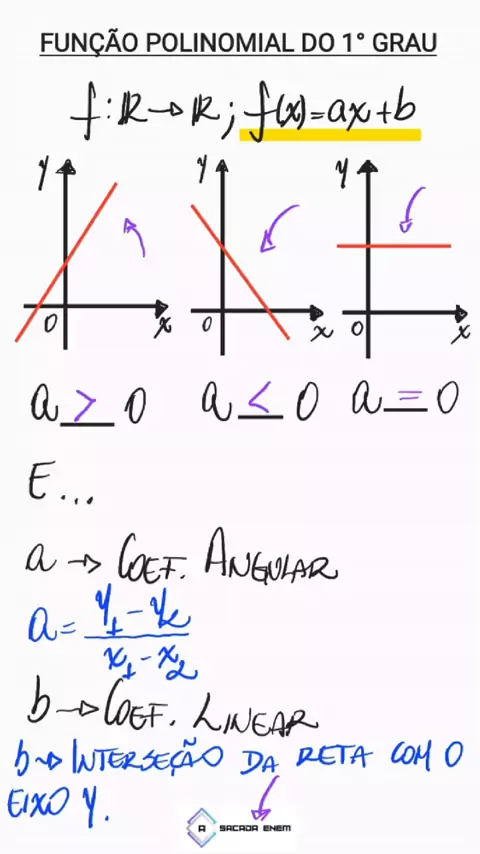 FUNÇÃO POLINOMIAL DO 1° GRAU
f: ℝ→ℝ; f(x)=ax+b
y y y
0 x 0 x 0 x
a > 0 a < 0 a = 0
E...
a → COEF. ANGULAR
a = y₁ - y₂
x₁ - x₂
b → COEF. LINEAR
b → INTERSEÇÃO DA RETA COM O
EIXO Y.
A SACADA ENEM